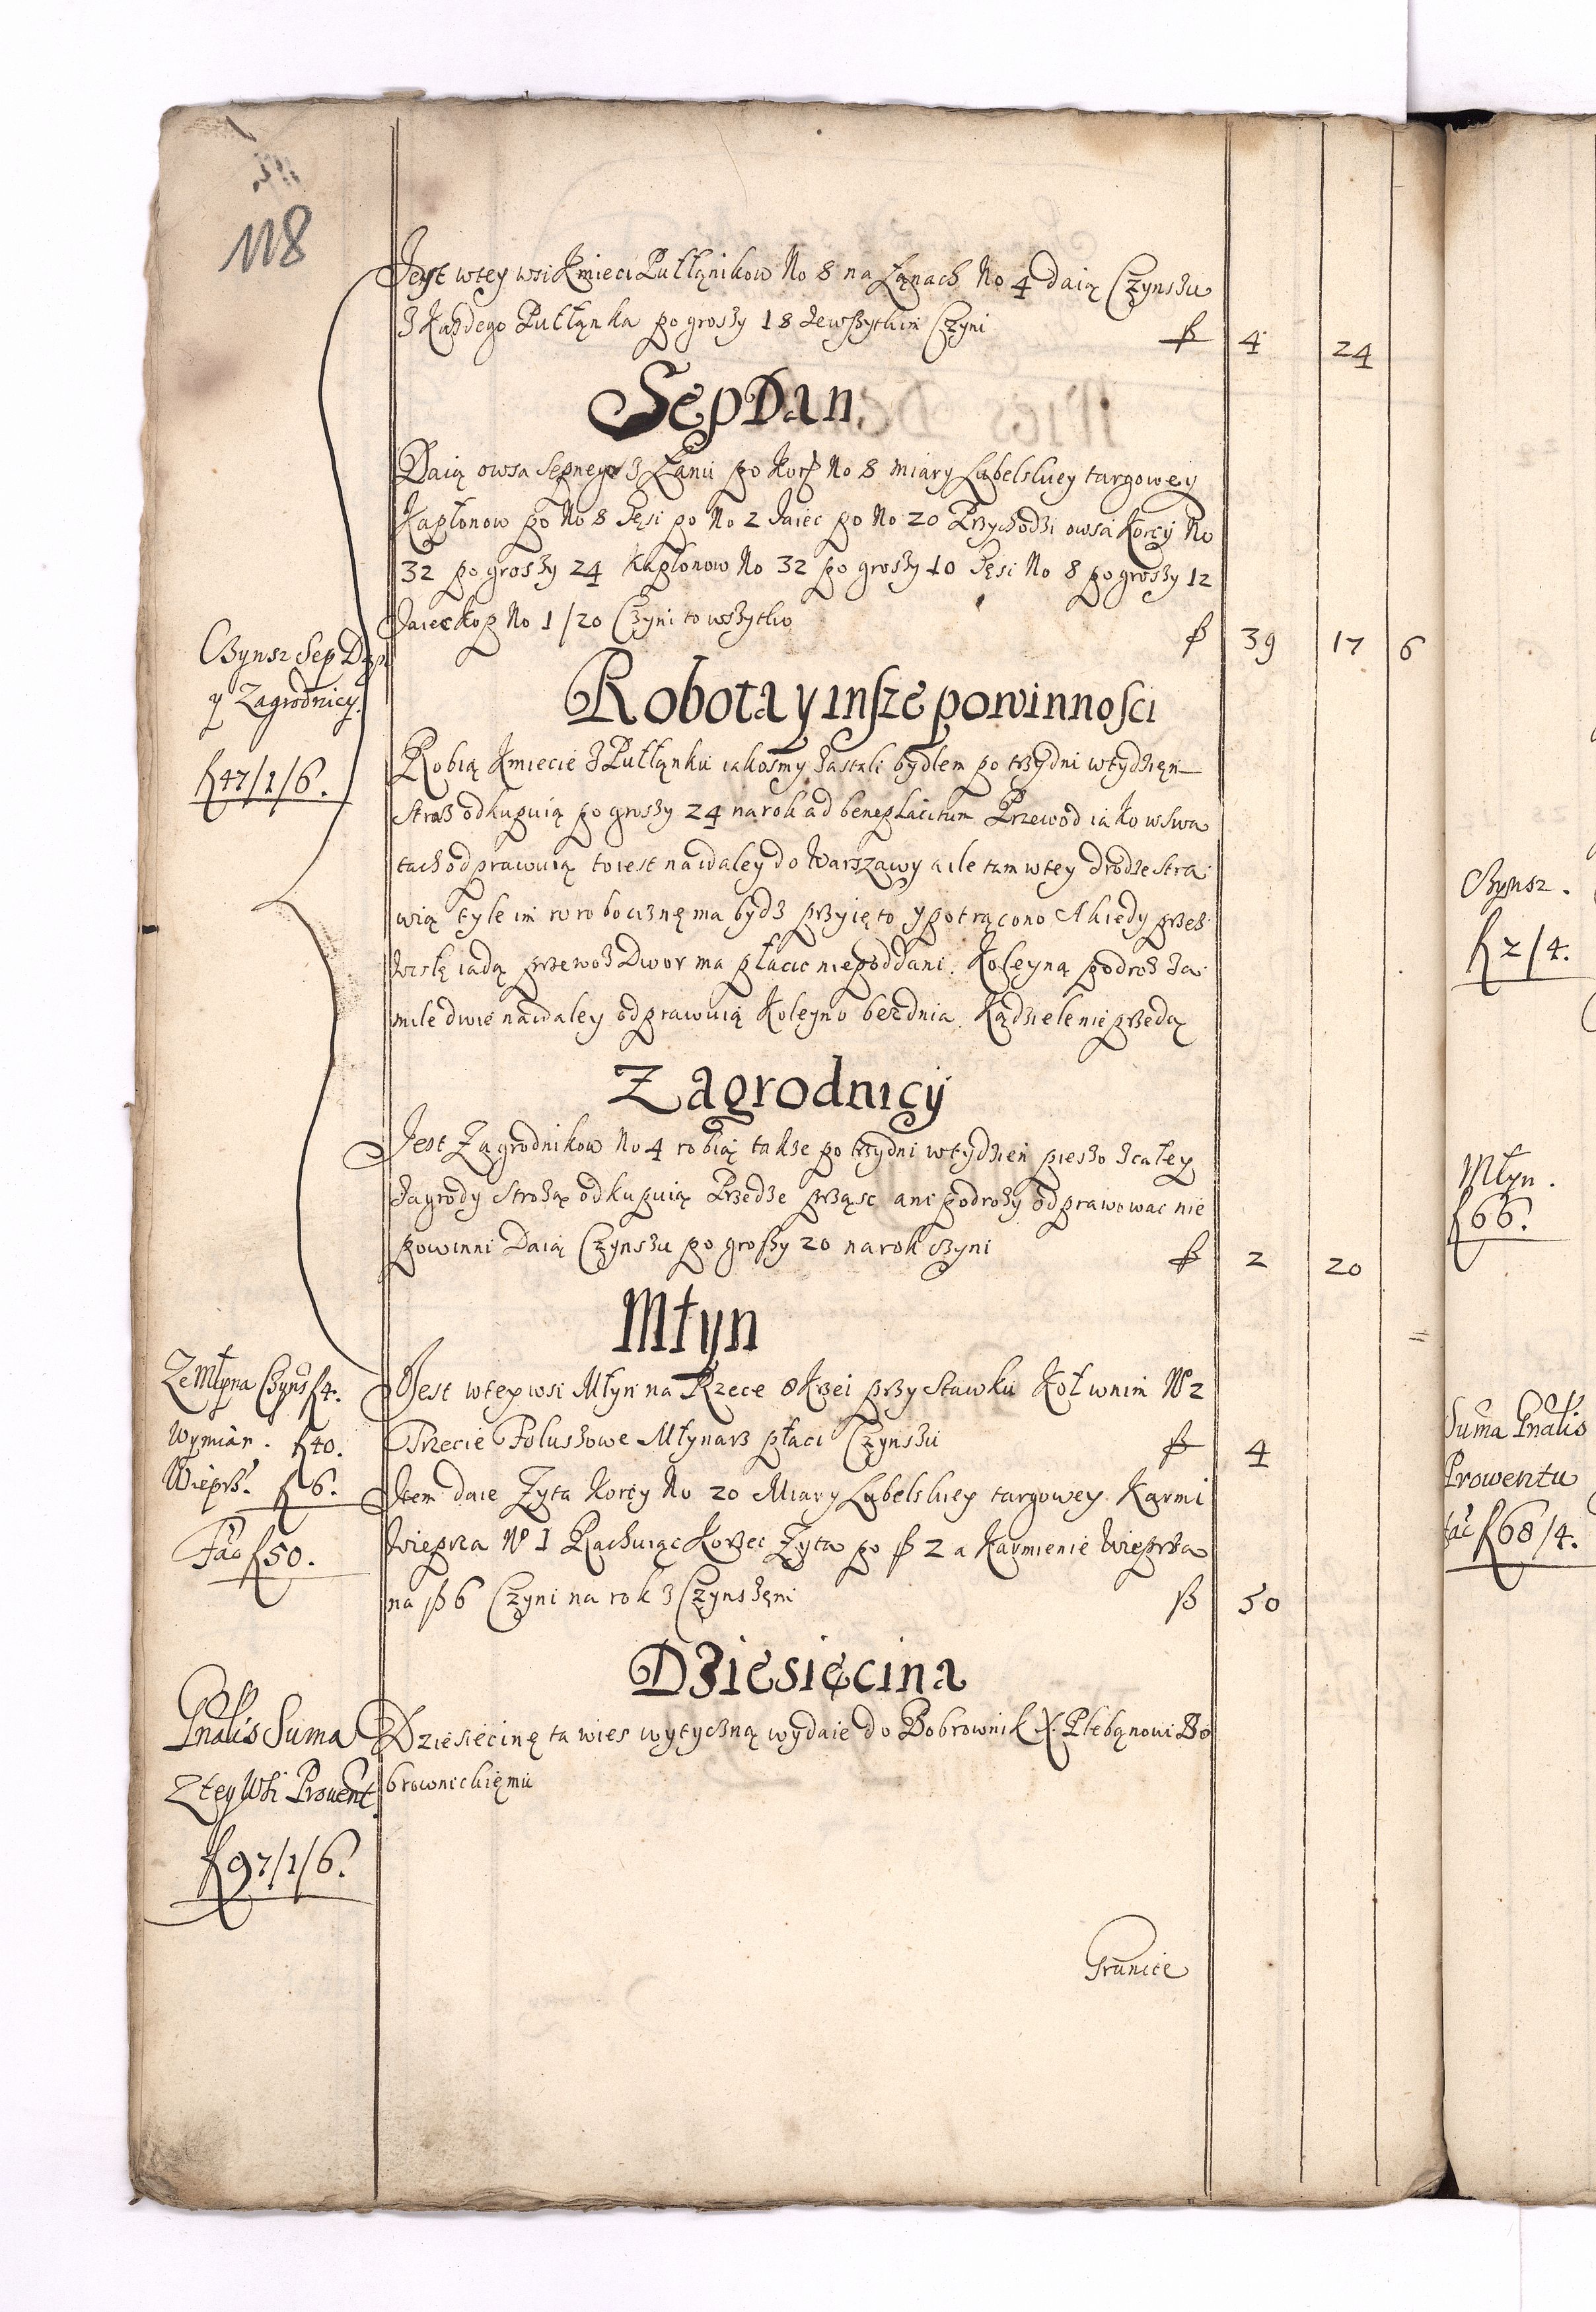 118
Jest wtey wsi Kmieci Pułłąnikow No 8 na Łąnach No 4 daią Czynszu
z Każdego Pułłąnka po groszy 18 zewszytkim Czyni ƒ 4 24
Sep Dan
Daią owsa sepnego z Łanu po Korcy No 8 miary Lubelskiey targowey
Kapłonow po No 8 Gęsi po No 2 Jaiec po No 20 Przychodzi owsa Korcy No
32 po groszy 24 Kapłonow No 32 po groszy 10 Gęsi No 8 po groszy 12
Jaiec kop No 1/20 Czyni to wszytko ƒ 39 17 6
Czynsz Sep Dan
y Zagrodnicy.
ƒ 47/1/6.
Robota y insze powinnosci
Robią Kmiecie z Pułłąnku iakosmy zastali bydłem po trzy dni wtydzięn
Straz odkupuią po groszy 24 na rok ad beneplacitum Przewod iako w swa
tach odprawuią to iest naidaley do Warszawy a ile tam wtey drodze stra
wią tyle im w robociznę ma bydz przyięto y potrącono A kiedy przez
Wisłę iadą przewoz Dwor ma płacic nie poddani. Koleyną podroz za
mile dwie naidaley odprawuią Koleyno bez dnia. Kądziele nie przedą
Zagrodnicy
Jest Zagrodnikow No 4 robią także po trzy dni wtydzień pieszo z całey
Zagrody Strożą odkupuią Przedze prząsc ani podroży odprawowac nie
powinni Daią Czynszu po groszy 20 na rok czyni ƒ 2 20
Młyn
Jest wtey wsi Młyn na Rzece Okrzei przy Stawku Koł wnim No 2
Trzecie Foluszowe Młynarz płaci Czynszu ƒ 4
Item daie Zyta Korcy No 20 Miary Lubelskiey targowey Karmi
Wieprza No 1 Rachuiąc Korzec Zyta po ƒ 2 a Karmienie Wieprza
na ƒ 6 Czyni na rok z Czynszęm ƒ 50
Ze Młyna Czyns ƒ 4.
Wymiar. ƒ 40.
Wieprz. ƒ 6.
Fac ƒ 50.
Dziesięcina
Dziesięcinę ta wies wytyczną wydaie do Bobrownik X. Plebąnowi Bo
brownickięmu
Gnalis Suma
Ztey Wsi Provent.
ƒ 97/1/6.
Granice
Czynsz.
ƒ 2/4.
Młyn.
ƒ 66.
Suma Gnalis
Prowentu
fac ƒ 68/4.